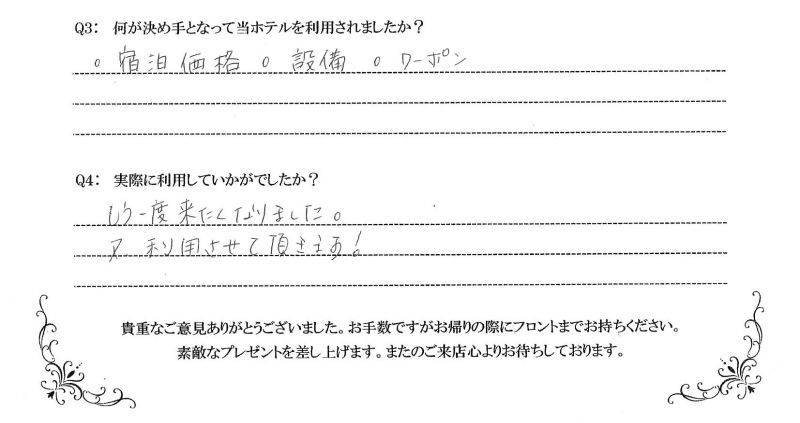 Q3: 何が決め手となって当ホテルを利用されましたか？
○ 宿泊価格 ○ 設備 ○ クーポン
Q4: 実際に利用していかがでしたか？
もう一度来たくなりました。
又、利用させて頂きます！
貴重なご意見ありがとうございました。お手数ですがお帰りの際にフロントまでお持ちください。
素敵なプレゼントを差し上げます。またのご来店心よりお待ちしております。